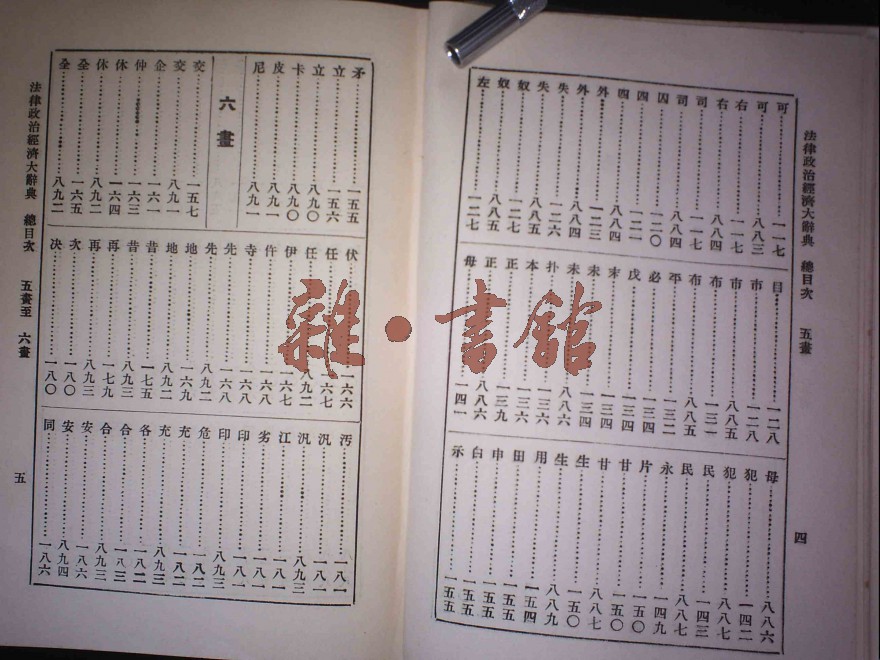 法律政治經濟大辭典 總目次 五畫 四
可 一一七
可 八八三
右 一一七
右 八八四
司 一一七
司 八八四
囚 一二〇
四 一二一
四 八八四
外 一二三
外 八八四
失 一二六
失 八八五
奴 一二七
奴 八八五
左 一二七
目 一二八
市 一二八
市 八八五
布 一三一
布 八八五
平 一三二
必 一三四
戊 一三四
末 一三四
未 一三四
未 八八六
扑 一三六
本 一三六
正 一三九
正 八八六
母 一四一
母 八八六
犯 一四二
犯 八八七
民 一四三
民 八八七
永 一四九
片 一五〇
甘 一五〇
甘 八八七
生 一五〇
生 八八九
用 一五四
田 一五五
申 一五五
白 一五五
示 一五五
矛 一五五
立 一五六
立 八九〇
卡 八九〇
皮 八九一
尼 八九一
六畫
交 一五七
交 八九一
企 一六一
仲 一六三
休 一六四
休 八九二
全 一六五
全 八九二
伏 一六六
任 一六七
任 八九二
伊 一六七
件 一六八
寺 一六八
先 一六八
先 八九二
地 一六九
地 八九二
昔 一七五
昔 八九三
再 一七九
再 八九三
次 一八〇
决 一八〇
汚 一八一
汎 一八一
汎 八九三
江 一八一
劣 一八一
印 一八一
印 八九三
危 一八二
充 一八二
充 八九三
各 一八二
合 一八三
合 八九三
安 一八六
安 八九四
同 一八六
法律政治經濟大辭典 總目次 五畫至六畫 五
雜·書館